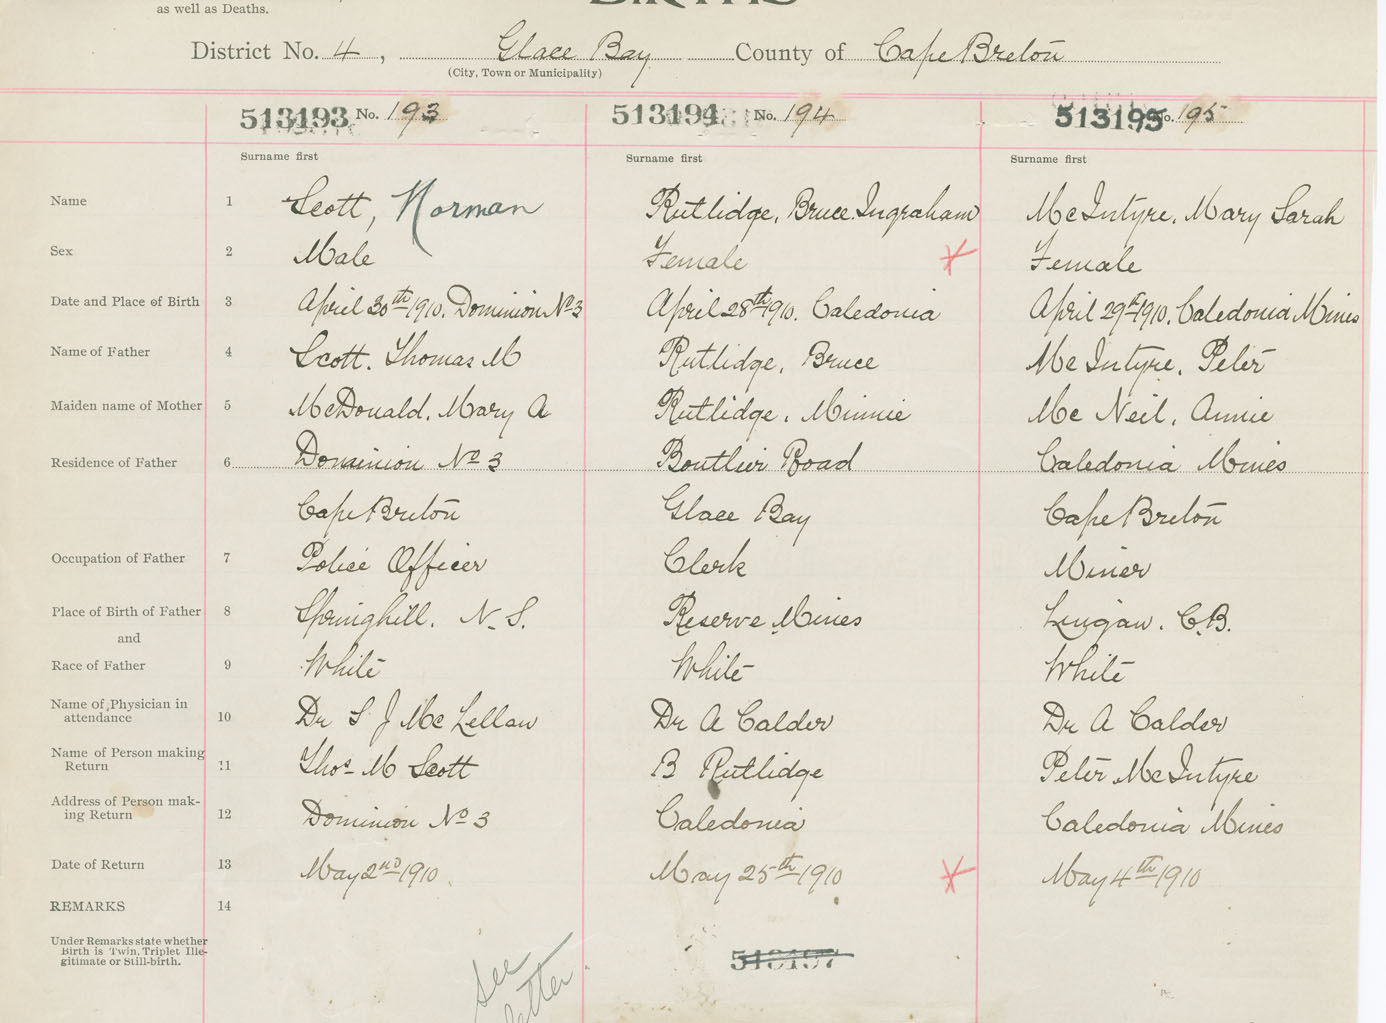 as well as Deaths.
BIRTHS
District No. 4, Glace Bay County of Cape Breton
(City, Town or Municipality)
513193 No. 193 513194 No. 194 513195 No. 195
Surname first Surname first Surname first
Name 1 Scott, Norman Rutlidge, Bruce Ingraham McIntyre, Mary Sarah
Sex 2 Male Female Female
Date and Place of Birth 3 April 30th 1910. Dominion No 3 April 28th 1910. Caledonia April 29th 1910. Caledonia Mines
Name of Father 4 Scott. Thomas M Rutlidge, Bruce McIntyre, Peter
Maiden name of Mother 5 McDonald, Mary A Rutlidge, Minnie Mc Neil, Annie
Residence of Father 6 Dominion No 3 Boutlier Road Caledonia Mines
Cape Breton Glace Bay Cape Breton
Occupation of Father 7 Police Officer Clerk Miner
Place of Birth of Father 8 Springhill, N.S. Reserve Mines Lingan. C.B.
and
Race of Father 9 White White White
Name of Physician in
attendance 10 Dr S J McLellan Dr A Calder Dr A Calder
Name of Person making
Return 11 Thos M Scott B Rutlidge Peter McIntyre
Address of Person mak-
ing Return 12 Dominion No 3 Caledonia Caledonia Mines
Date of Return 13 May 2nd 1910 May 25th 1910 May 4th 1910
REMARKS 14
Under Remarks state whether
Birth is Twin, Triplet Ille-
gitimate or Still-birth.
513197
See
letter